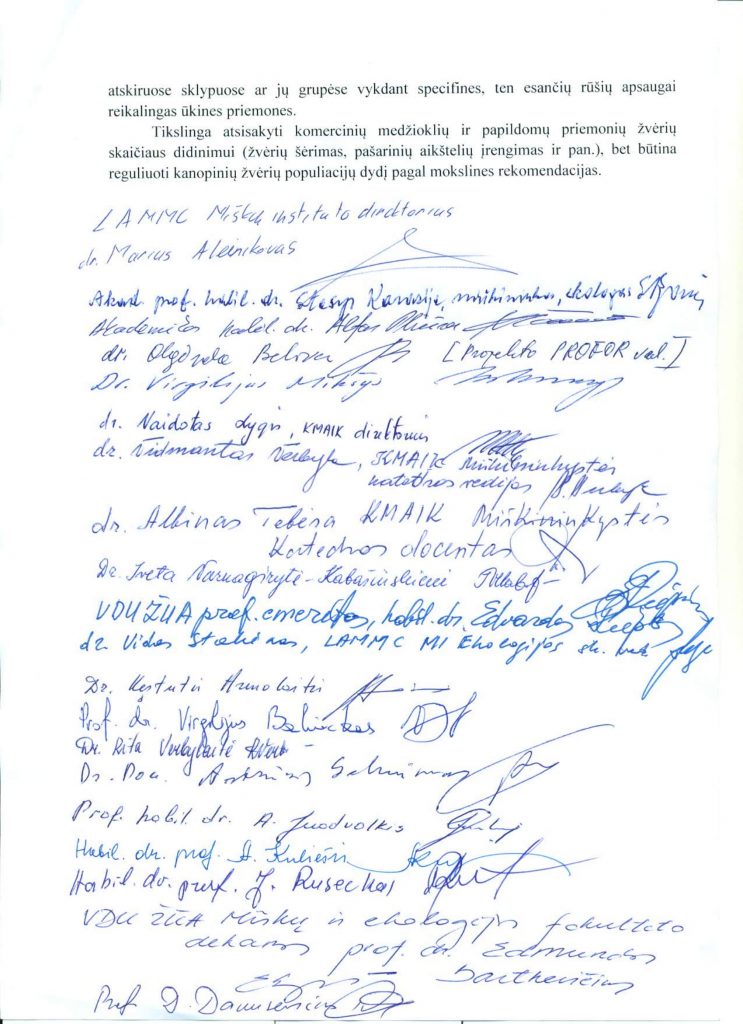 atskiruose sklypuose ar jų grupėse vykdant specifines, ten esančių rūšių apsaugai
reikalingas ūkines priemones.
Tikslinga atsisakyti komercinių medžioklių ir papildomų priemonių žvėrių
skaičiaus didinimui (žvėrių šėrimas, pašarinių aikštelių įrengimas ir pan.), bet būtina
reguliuoti kanopinių žvėrių populiacijų dydį pagal mokslines rekomendacijas.
LAMMC Miškų instituto direktorius
dr. Marius Aleinikovas
Akad. prof. habil. dr. Stasys Karazija, miškininkas, ekologas
Akademikas habil. dr. Alfas
dr. Olgirda Belova [Projekto PROFOR vad.]
Dr. Virgilijus Mikšys
dr. Naidotas Lygis, KMAIK direktorius
dr. Vidmantas Verbyla, KMAIK Miškininkystės
katedros vedėjas
dr. Albinas Tebėra KMAIK Miškininkystės
Katedros docentas
Dr. Iveta Varnagirytė-Kabašinskienė
VDU ŽŪA prof. emeritas, habil. dr. Edvardas
dr. Vidas Stakėnas, LAMMC MI Ekologijos sk.
Dr. Kęstutis Armolaitis
Prof. dr. Virgilijus Baliuckas
Dr. Rita Verbylaitė
Dr. Doc.
Prof. habil. dr. A. Juodvalkis
Habil. dr. prof. A. Kuliešis
Habil. dr. prof. J. Ruseckas
VDU ŽŪA Miškų ir ekologijos fakulteto
dekanas prof. dr. Edmundas
Bartkevičius
Prof D. Danusevičius